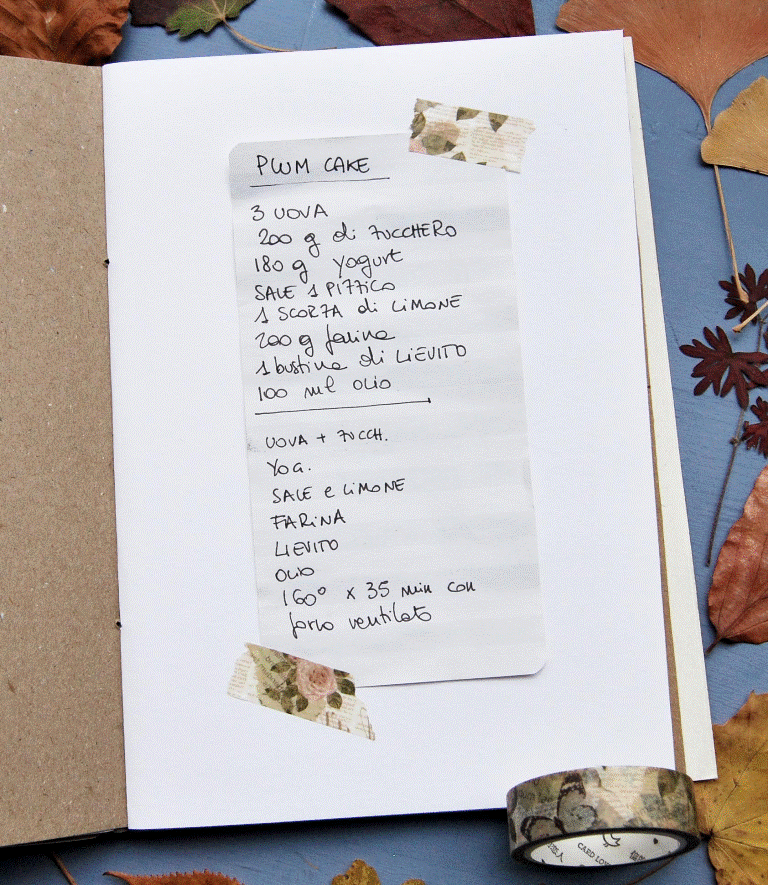 PLUM CAKE
3 UOVA
200 g di ZUCCHERO
180 g yogurt
SALE 1 PIZZICO
1 SCORZA di LIMONE
200 g farina
1 bustina di LIEVITO
100 ml OLIO
UOVA + ZUCCH.
YOG.
SALE e LIMONE
FARINA
LIEVITO
OLIO
160° x 35 min con
forno ventilato
CARD LOV